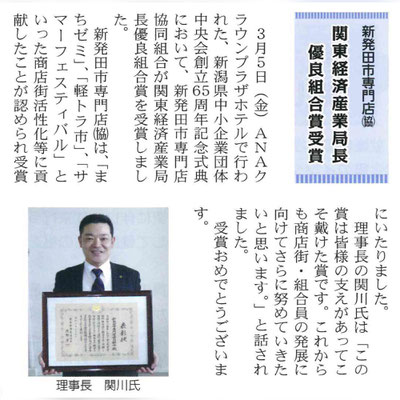 新発田市専門店㈿
関東経済産業局長
優良組合賞受賞
３月５日（金）ＡＮＡク
ラウンプラザホテルで行わ
れた、新潟県中小企業団体
中央会創立65周年記念式典
において、新発田市専門店
協同組合が関東経済産業局
長優良組合賞を受賞しまし
た。
新発田市専門店㈿は、「ま
ちゼミ」、「軽トラ市」、「サ
マーフェスティバル」と
いった商店街活性化等に貢
献したことが認められ受賞
にいたりました。
理事長の関川氏は「この
賞は皆様の支えがあってこ
そ戴けた賞です。これから
も商店街・組合員の発展に
向けてさらに努めていきた
いと思います。」と話され
ました。
受賞おめでとうございま
す。
表彰状
理事長　関川氏